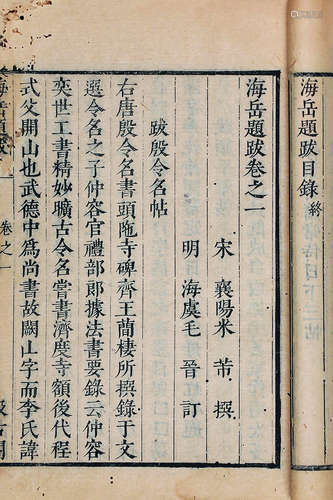 海岳題跋目錄 終
海岳題跋卷之一
宋 襄陽米 芾 撰
明 海虞毛 晉 訂
跋殷令名帖
右唐殷令名書頭陁寺碑齊王簡棲所撰錄于文
選令名之子仲容官禮部郎據法書要錄云仲容
奕世工書精妙曠古令名嘗書濟度寺額後代程
式父開山也武德中爲尚書故闕山字而李氏諱
海岳題跋
卷之一
汲古閣